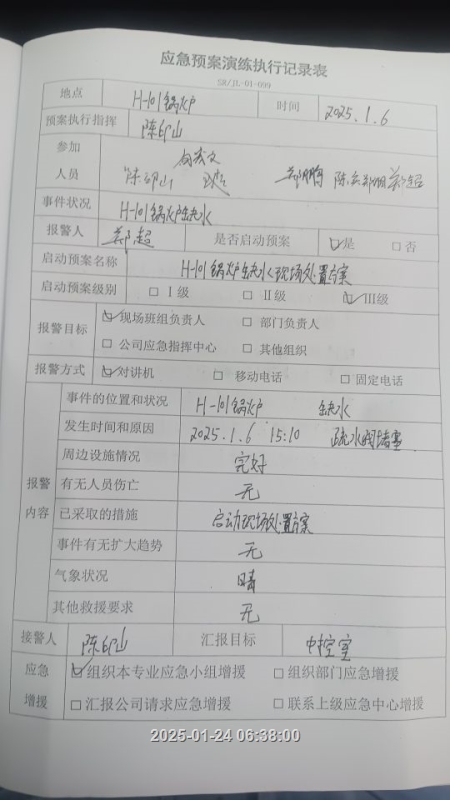 应急预案演练执行记录表
SR/JL-01-099
地点 H-101锅炉 时间 2025.1.6
预案执行指挥 陈印山
参加
人员 陈印山
事件状况 H-101锅炉缺水
报警人 郑超 是否启动预案 ☑是 □否
启动预案名称 H-101锅炉缺水现场处置方案
启动预案级别 □Ⅰ级 □Ⅱ级 ☑Ⅲ级
报警目标 ☑现场班组负责人 □部门负责人
□公司应急指挥中心 □其他组织
报警方式 ☑对讲机 □移动电话 □固定电话
报警内容
事件的位置和状况 H-101锅炉 缺水
发生时间和原因 2025.1.6 15:10 疏水阀堵塞
周边设施情况 完好
有无人员伤亡 无
已采取的措施 启动现场处置方案
事件有无扩大趋势 无
气象状况 晴
其他救援要求 无
接警人 陈印山 汇报目标 中控室
应急 ☑组织本专业应急小组增援 □组织部门应急增援
增援 □汇报公司请求应急增援 □联系上级应急中心增援
2025-01-24 06:38:00